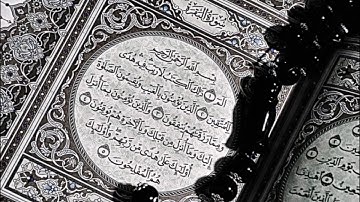 سُورَةُ البَقَرَةِ
بِسْمِ اللَّهِ الرَّحْمَٰنِ الرَّحِيمِ
الٓمٓ ۝١ ذَٰلِكَ ٱلْكِتَٰبُ لَا رَيْبَ فِيهِ هُدًى
لِّلْمُتَّقِينَ ۝٢ ٱلَّذِينَ يُؤْمِنُونَ بِٱلْغَيْبِ وَيُقِيمُونَ ٱلصَّلَوٰةَ
وَمِمَّا رَزَقْنَٰهُمْ يُنفِقُونَ ۝٣ وَٱلَّذِينَ يُؤْمِنُونَ بِمَآ أُنزِلَ
إِلَيْكَ وَمَآ أُنزِلَ مِن قَبْلِكَ وَبِٱلْءَاخِرَةِ هُمْ يُوقِنُونَ ۝٤
أُو۟لَٰٓئِكَ عَلَىٰ هُدًى مِّن رَّبِّهِمْ وَأُو۟لَٰٓئِكَ
هُمُ ٱلْمُفْلِحُونَ ۝٥